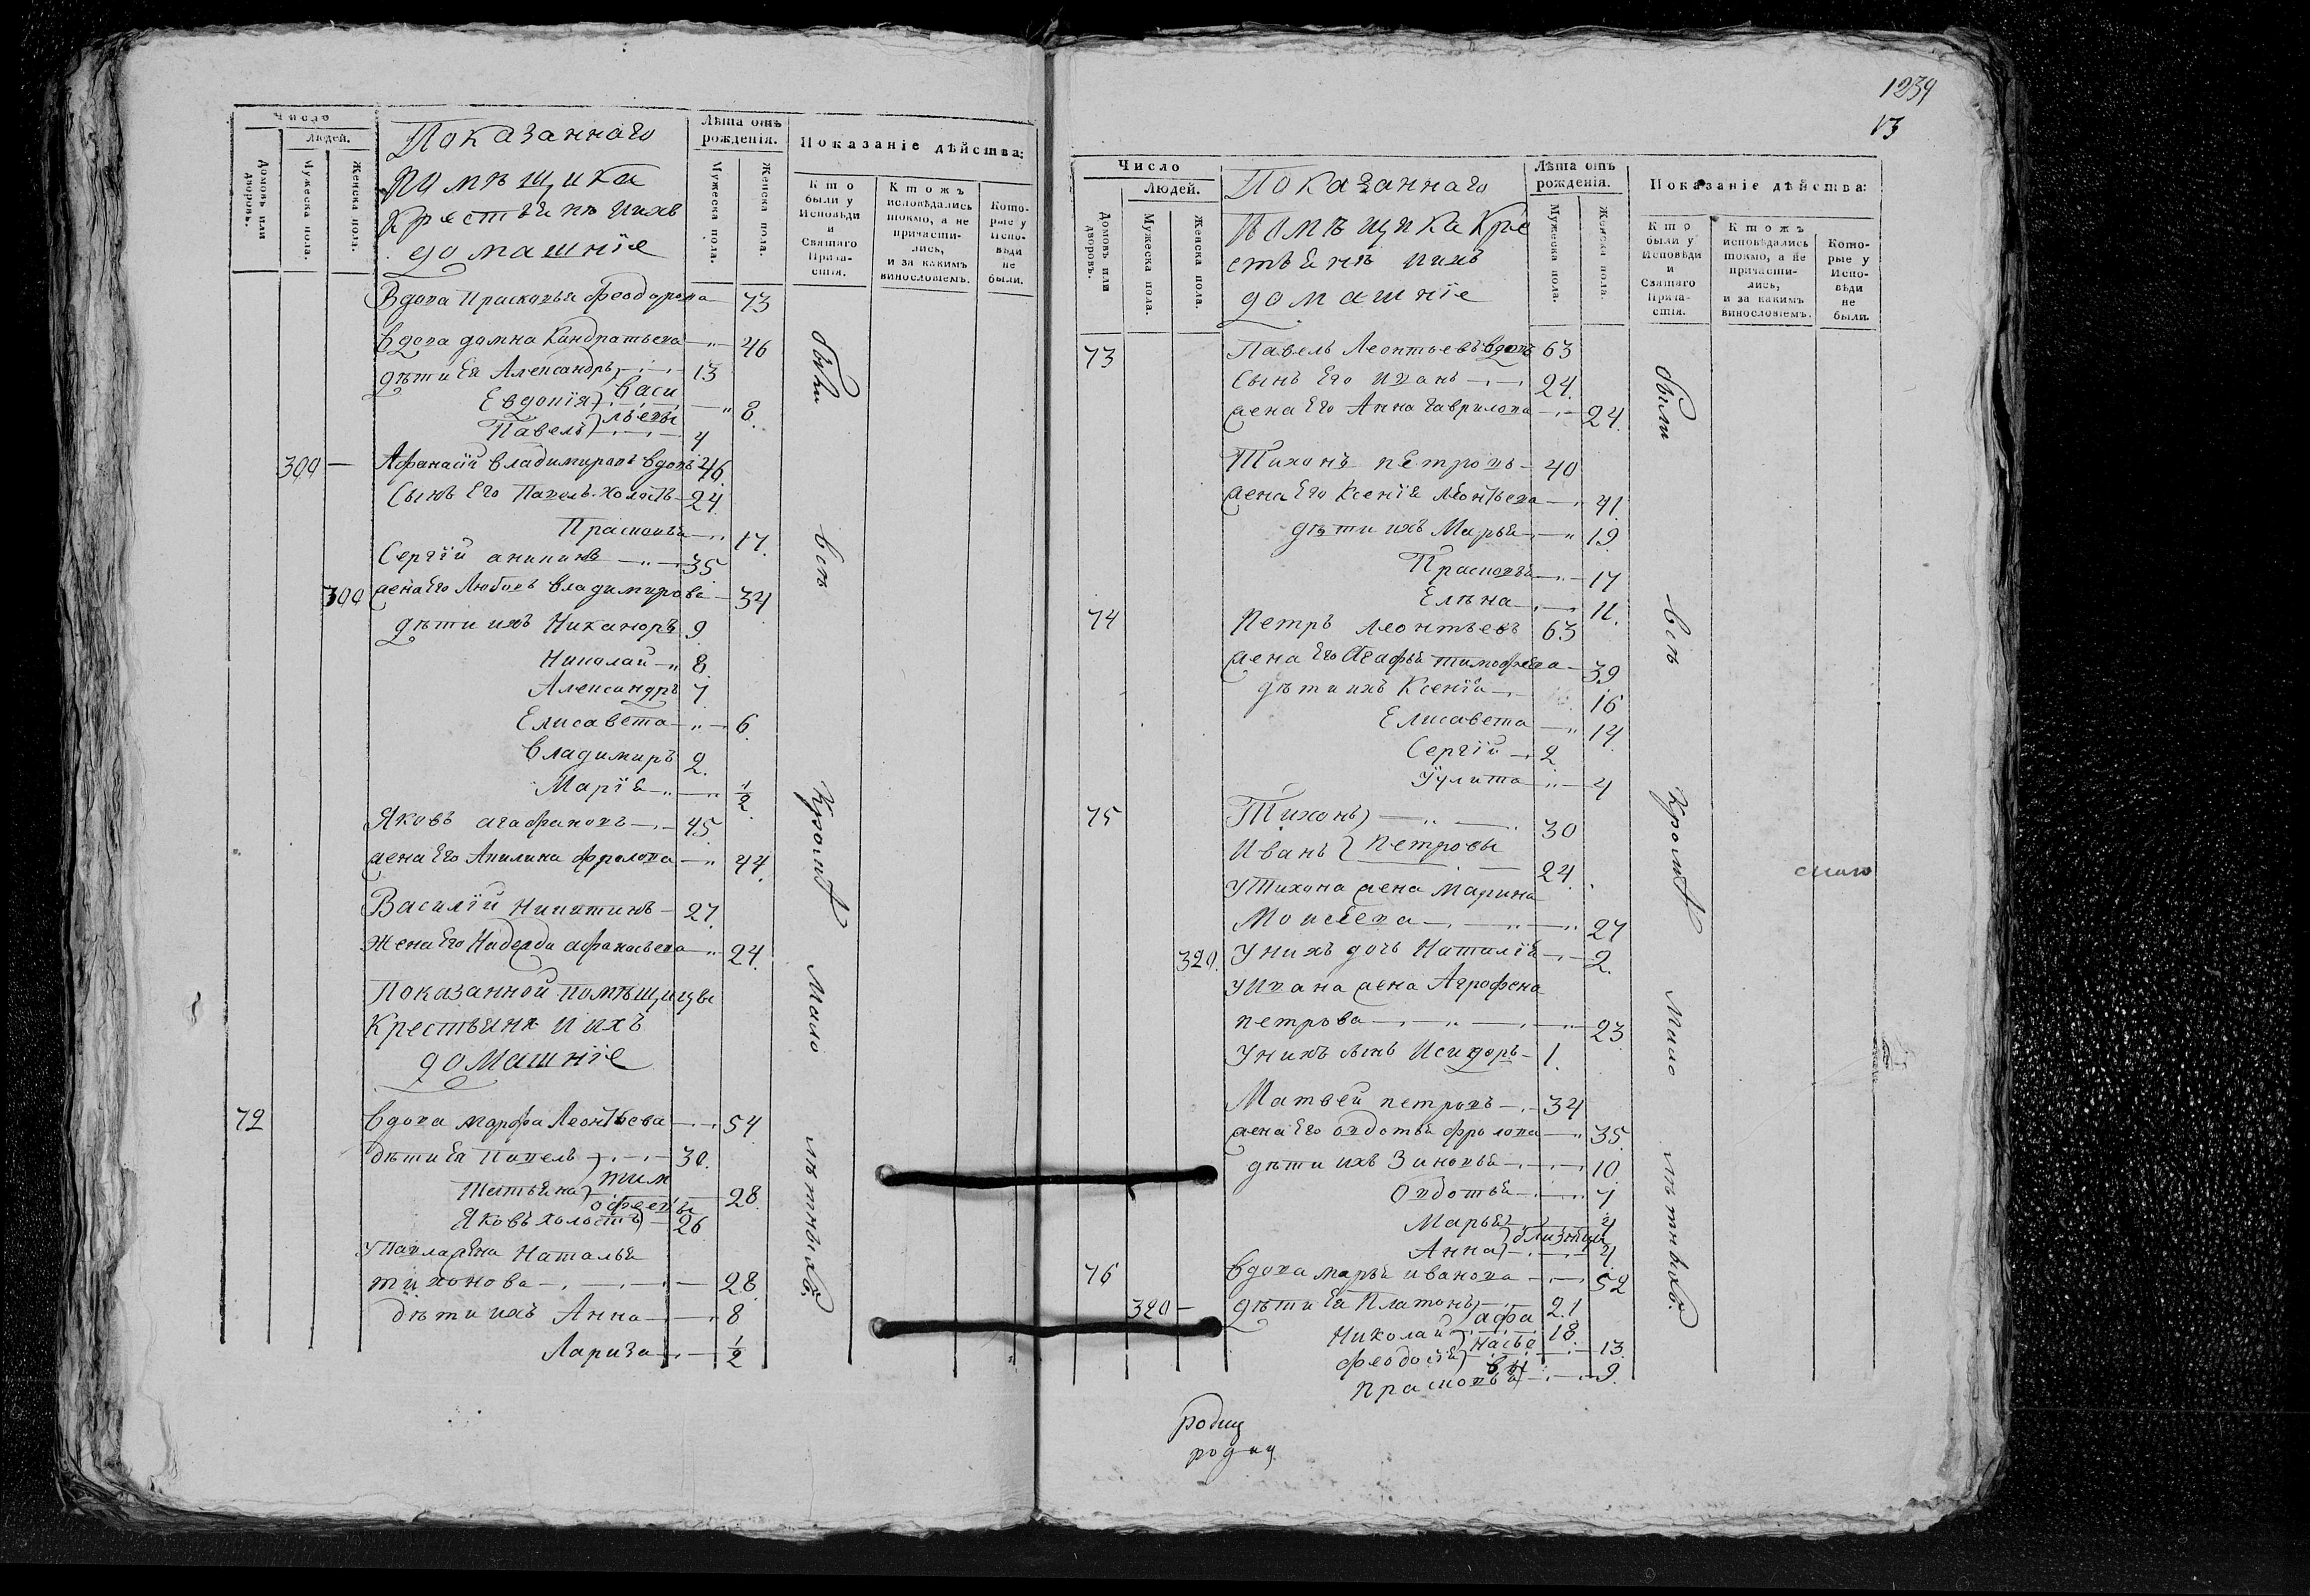 Число
Людей.
Домовъ или дворовъ.
Мужеска пола.
Женска пола.
Показаннаго
помѣщика
Крестьянѣ ииxъ
домашнїе
Лѣта отъ рожденія.
Мужеска пола.
Женска пола.
Показаніе дѣйства:
Кто были у Исповѣди и Святаго Прича-стія.
Ктожъ исповѣдались токмо, а не причасти-лись, и за какимъ винословіемъ.
Кото-рые у Испо-вѣди не были.
Вдова Прасковья Феодорова 73
Вдова домна Кандратьева 46
дѣти Ея Александръ 13
Евдокїя Васи 8
Павелъ льевы 4
300 Афанасїй Владимировъ вдовъ 46
Сынъ Его Павелъ холостъ 24
Прасковья 17
Сергїй 35
300 жена Его Любовь Владимирова 34
дѣти ихъ Никаноръ 9
Николай 8
Александръ 7
Елисавета 6
Владимиръ 2
Марїя 1/2
Яковъ агафоновъ 45
жена Его Акилина фролова 44
Василїй Никитинъ 27
жена Его Надежда афанасьева 24
Показанной помѣщицы
Крестьяня и ихъ
домашнїе
72 Вдова марфа Леонтьева 54
дѣти Ея Павелъ 30
Татьяна тим 28
Яковъ холостъ офеевы 26
У Павла жена Наталья
тихонова 28
дѣти ихъ Анна 8
Лариза 1/2
были всѣ Кромѣ Мало лѣтныхъ
1239
13
Число
Людей.
Домовъ или дворовъ.
Мужеска пола.
Женска пола.
Показаннаго
помѣщика Кре
стьянѣ ииxъ
домашнїе
Лѣта отъ рожденія.
Мужеска пола.
Женска пола.
Показаніе дѣйства:
Кто были у Исповѣди и Святаго Прича-стія.
Ктожъ исповѣдались токмо, а не причасти-лись, и за какимъ винословіемъ.
Кото-рые у Испо-вѣди не были.
73 Павелъ Леонтьевъ вдовъ 63
Сынъ Его Иванъ 24
жена Его Анна Гаврилова 24
Тихонъ петровъ 40
жена Его Ксенїя Леонтьева 41
дѣти ихъ Марья 19
Прасковья 17
Елѣна 11
74 Петръ Леонтьевъ 63
жена Его Агафья тимофеева 39
дѣти ихъ Ксенїя 16
Елисавета 14
Сергїй 2
Їулита 4
75 Тихонъ 30
Иванъ Петровы 24
У Тихона жена Марина
Моисеева 27
320 У нихъ дочь Наталїя 2
У Ивана жена Агрофена
петрова 23
У нихъ сынъ Исидоръ 1
Матвей петровъ 34
жена Его овдотья фролова 35
дѣти ихъ Зиновья 10
Овдотья 7
Марья 4
Анна близнцы 4
76 Вдова марья иванова 52
320 дѣти Ея Платонъ 21
Николай афа 18
Феодосїя насье 13
Прасковья вы 9
были всѣ Кромѣ Мало лѣтныхъ
родиц
родиц